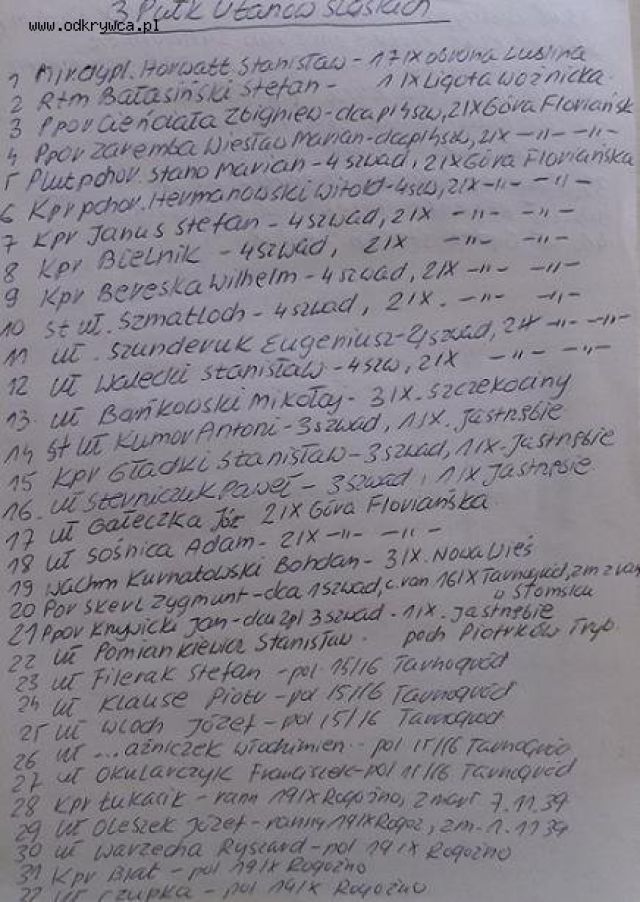 3 Pułk Ułanów Śląskich
www.odkrywca.pl
1 Mjr dypl. Horwatt Stanisław - 17 IX obrona Lublina
2 Rtm Bałasiński Stefan - 1 IX Ligota Woźnicka
3 Ppor Cieńciała Zbigniew - dca pl 4 szw, 2 IX Góra Floriańsk
4 Ppor Zaremba Wiesław Marian - dca pl 4 szw, 2 IX -"- -"-
5 Plut pchor. Stano Marian - 4 szwad, 2 IX Góra Floriańska
6 Kpr pchor. Hermanowski Witold - 4 szw, 2 IX -"- -"-
7 Kpr Janus Stefan - 4 szwad, 2 IX -"- -"-
8 Kpr Bielnik - 4 szwad, 2 IX -"- -"-
9 Kpr Bereska Wilhelm - 4 szwad, 2 IX -"- -"-
10 st uł. Szmatloch - 4 szwad, 2 IX. -"- -"-
11 uł. Szunderuk Eugeniusz - 4 szwad, 2 IX -"- -"-
12 uł Walecki Stanisław - 4 szw, 2 IX -"- -"-
13. uł Bańkowski Mikołaj - 3 IX. Szczekociny
14 st uł Kumor Antoni - 3 szwad, 1 IX. Jastrzębie
15 Kpr Gładki Stanisław - 3 szwad, 1 IX. Jastrzębie
16. uł Sterniczuk Paweł - 3 szwad, 1 IX Jastrzębie
17 uł Gałeczka Józ 2 IX Góra Floriańska
18 uł Sośnica Adam - 2 IX -"- -"-
19 wachm Kurnatowski Bohdan - 3 IX. Nowa Wieś
20 Por Skerl Zygmunt - dca 1 szwad, c. ran 16 IX Tarnogród, zm z ran
21 Ppor Krywicki Jan - dca 2 pl 3 szwad. 1 IX. Jastrzębie
22 uł Pomiankiewicz Stanisław. poch Piotrków Tryb.
23 uł Filerak Stefan - pol 15/16 Tarnogród
24 uł Klause Piotr - pol 15/16 Tarnogród
25 uł Wloch Józef - pol 15/16 Tarnogród
26 uł ...aźniczek Włodzimierz - pol 15/16 Tarnogród
27 uł Okularczyk Franciszek - pol 15/16 Tarnogród
28 Kpr Łukasik - rann 19 IX Rogoźno, zmarł 7.11.39
29 uł Oleszek Józef - ranny 19 IX Rogoź, zm.
30 uł Warzecha Ryszard - pol 19 IX Rogoźno
31 Kpr Biał - pol 19 IX Rogoźno
32 uł Czupka - pol 19 IX Rogoźno